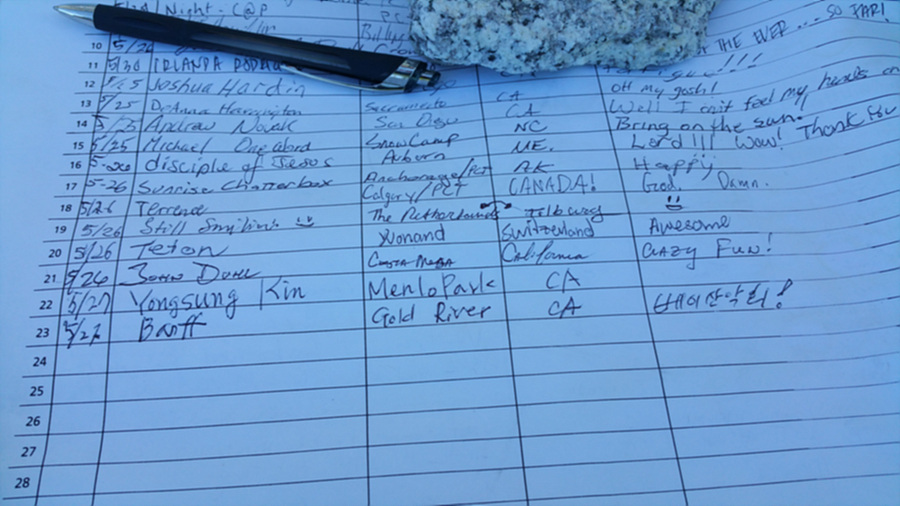 5/24 Night-C@P
10 5/26 THE EVER... SO FAR!
11 5/30 IRLANDA !!!
12 5/25 Joshua Hardin CA OH my gosh!
13 5/25 DeAnna Harrington Sacramento CA Well I can't feel my hands on
14 5/25 Andrew Novak San Diego NC Bring on the sun.
15 5/25 Michael One Word Snow Camp ME. Lord!!! Wow! Thank You
16 5-26 disciple of Jesus Auburn AK Happy
17 5-26 Sunrise Chatterbox Anchorage/PCT CANADA! God. Damn.
18 5/26 Terrence Calgary/PCT
19 5/26 Still Smilin' The Netherlands Tilburg
20 5/26 Teton Yvonand Switzerland Awesome
21 5/26 John Costa Mesa California CRAZY FUN!
22 5/27 Yongsung Kin Menlo Park CA
23 5/27 Banff Gold River CA
24
25
26
27
28